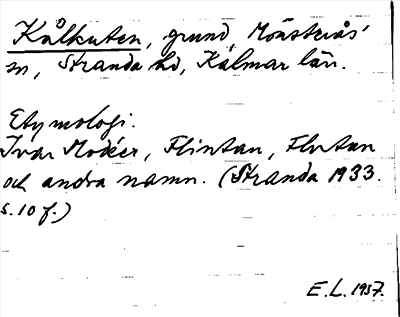 Kålkuten, grund, Mönsterås'
sn, Stranda hd, Kalmar län.
Etymologi.
Ivar Modéer, Flintan, Flutan
och andra namn. (Stranda 1933.
s. 10 f.)
E.L. 1957.